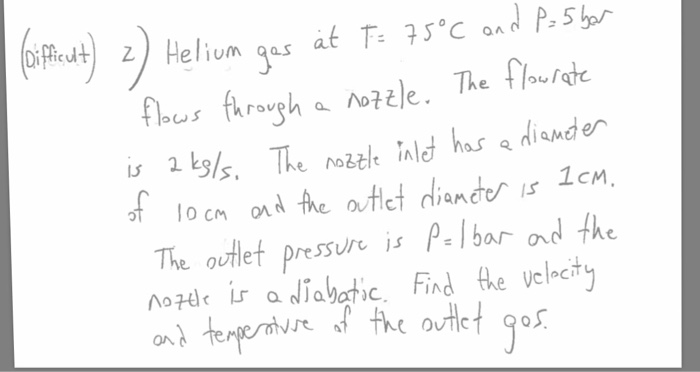 (Difficult) 2) Helium gas at T= 75°C and P=5 bar
flows through a nozzle. The flowrate
is 2 kg/s. The nozzle inlet has a diameter
of 10 cm and the outlet diameter is 1CM.
The outlet pressure is P=1bar and the
nozzle is adiabatic. Find the velocity
and temperature of the outlet gas.